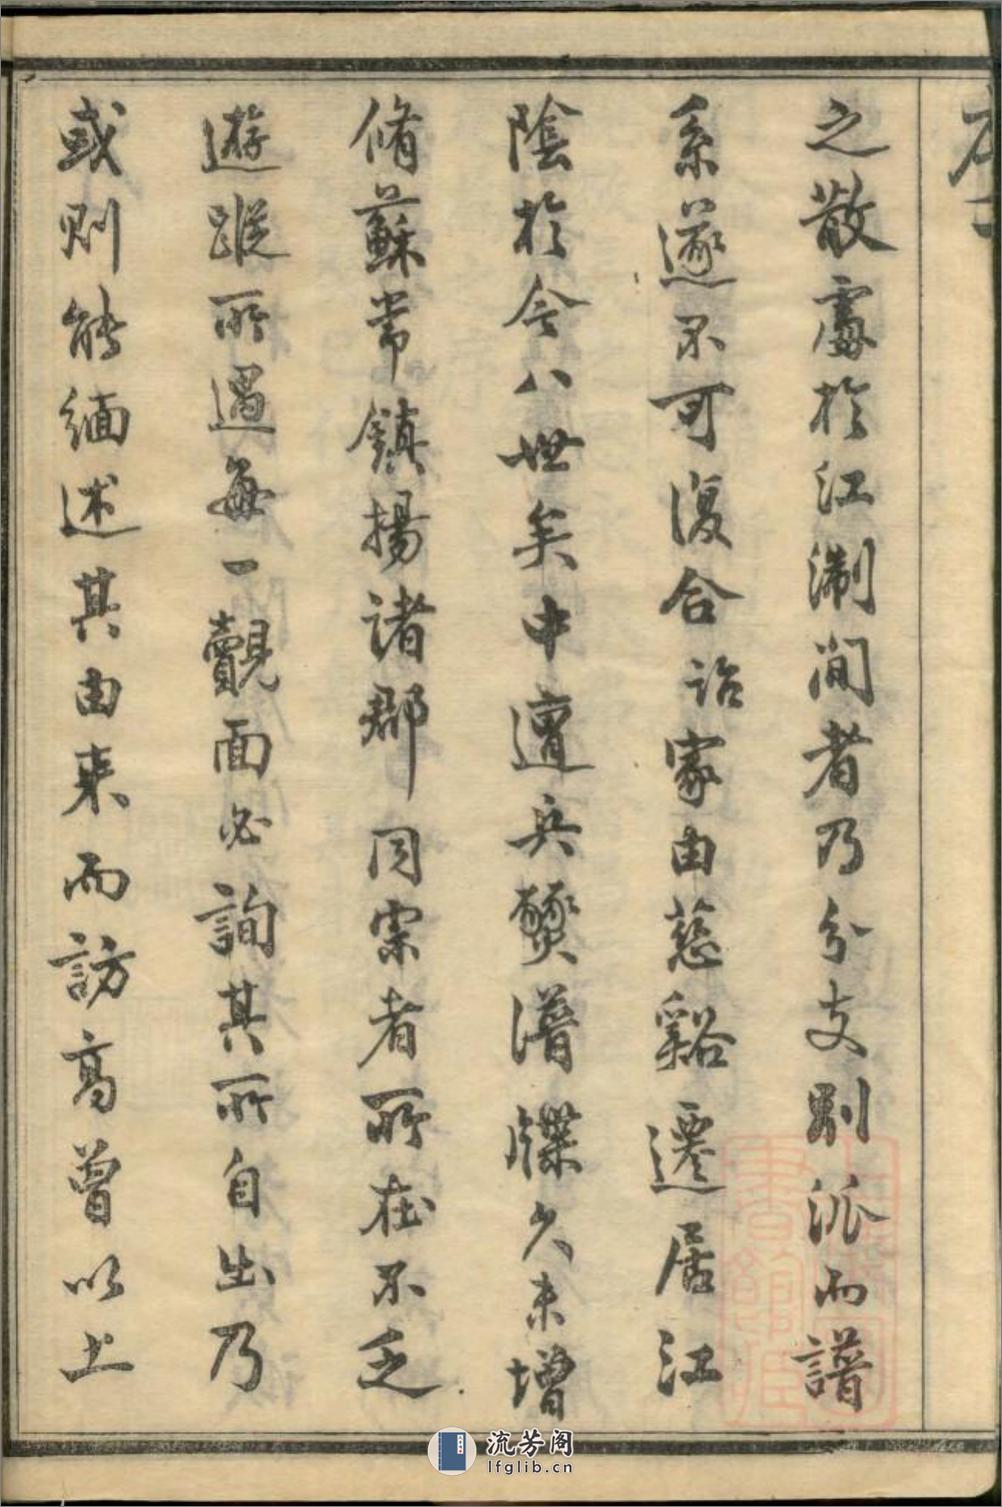 之散處於江淛間者乃分支別派而譜
系遂不可復合詒家由慈谿遷居江
陰於今八世矣中遭兵燹譜牒久未增
脩蘇常鎮揚諸郡同宗者所在不乏
遊蹤所遇每一覿面必詢其所自出乃
或則能緬述其由來而訪高曾以上
流芳阁
lfglib.cn